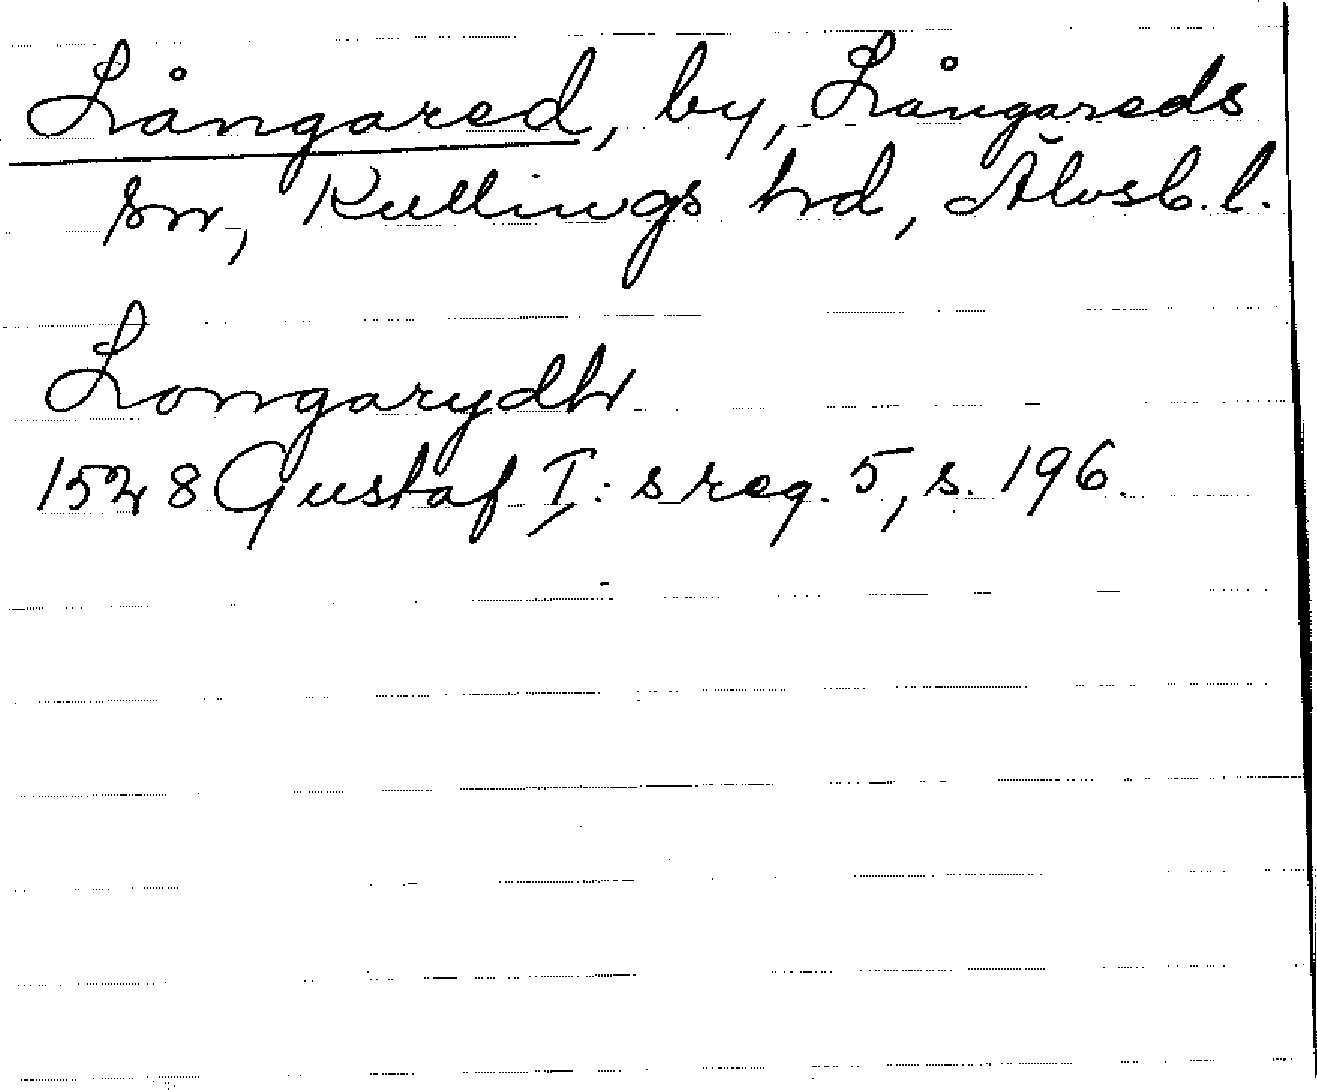 Långared, by, Långareds
sn, Kullings hd, Älvsb. l.
Longarydh
1528 Gustaf I: s reg. 5, s. 196.